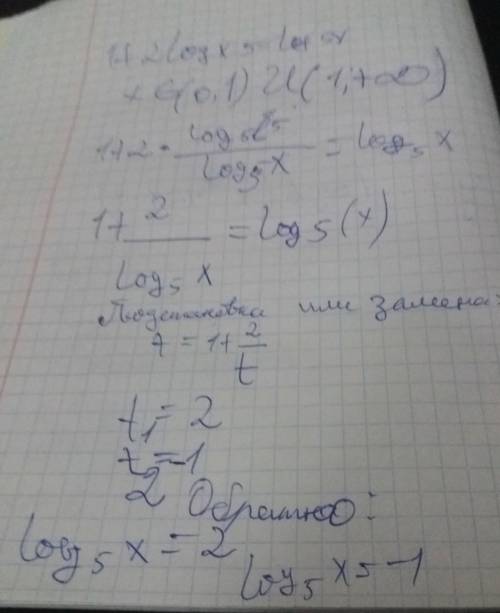 1+2log x 5 = log 5 x
x ∈ (0,1) U (1,+∞)
1+2· log₅5 / log₅x = log₅ x
1+ 2 / log₅ x = log 5 (x)
Подстановка или замена:
t = 1+ 2/t
t₁ = 2
t₂ = -1
Обратно:
log₅ x = 2
log₅ x = -1